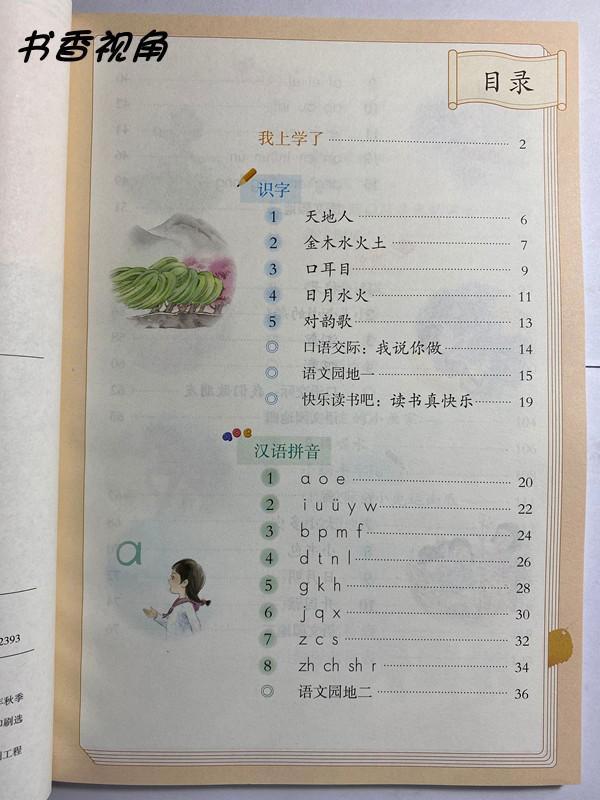 书香视角
目录
我上学了 2
识字
1 天地人 6
2 金木水火土 7
3 口耳目 9
4 日月水火 11
5 对韵歌 13
◎ 口语交际：我说你做 14
◎ 语文园地一 15
◎ 快乐读书吧：读书真快乐 19
汉语拼音
1 ɑ o e 20
2 i u ü y w 22
3 b p m f 24
4 d t n l 26
5 g k h 28
6 j q x 30
7 z c s 32
8 zh ch sh r 34
◎ 语文园地二 36
ɑ
2393
年秋季
印刷选
工程